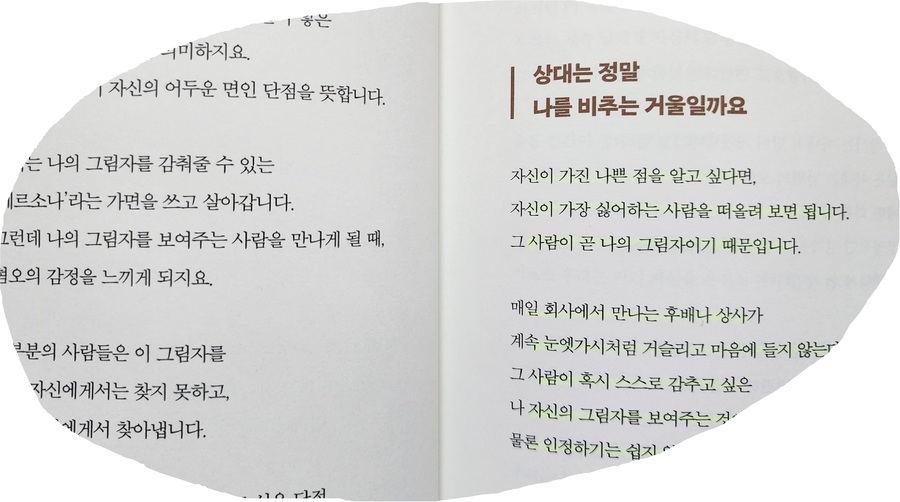 좋은
의미하지요.
자신의 어두운 면인 단점을 뜻합니다.
나의 그림자를 감춰줄 수 있는
가면을 쓰고 살아갑니다.
그런데 나의 그림자를 보여주는 사람을 만나게 될 때,
혐오의 감정을 느끼게 되지요.
사람들은 이 그림자를
자신에게서는 찾지 못하고,
찾아냅니다.
단점
상대는 정말
나를 비추는 거울일까요
자신이 가진 나쁜 점을 알고 싶다면,
자신이 가장 싫어하는 사람을 떠올려 보면 됩니다.
그 사람이 곧 나의 그림자이기 때문입니다.
매일 회사에서 만나는 후배나 상사가
계속 눈엣가시처럼 거슬리고 마음에 들지
그 사람이 혹시 스스로 감추고 싶은
나 자신의 그림자를 보여주는
물론 인정하기는 쉽지